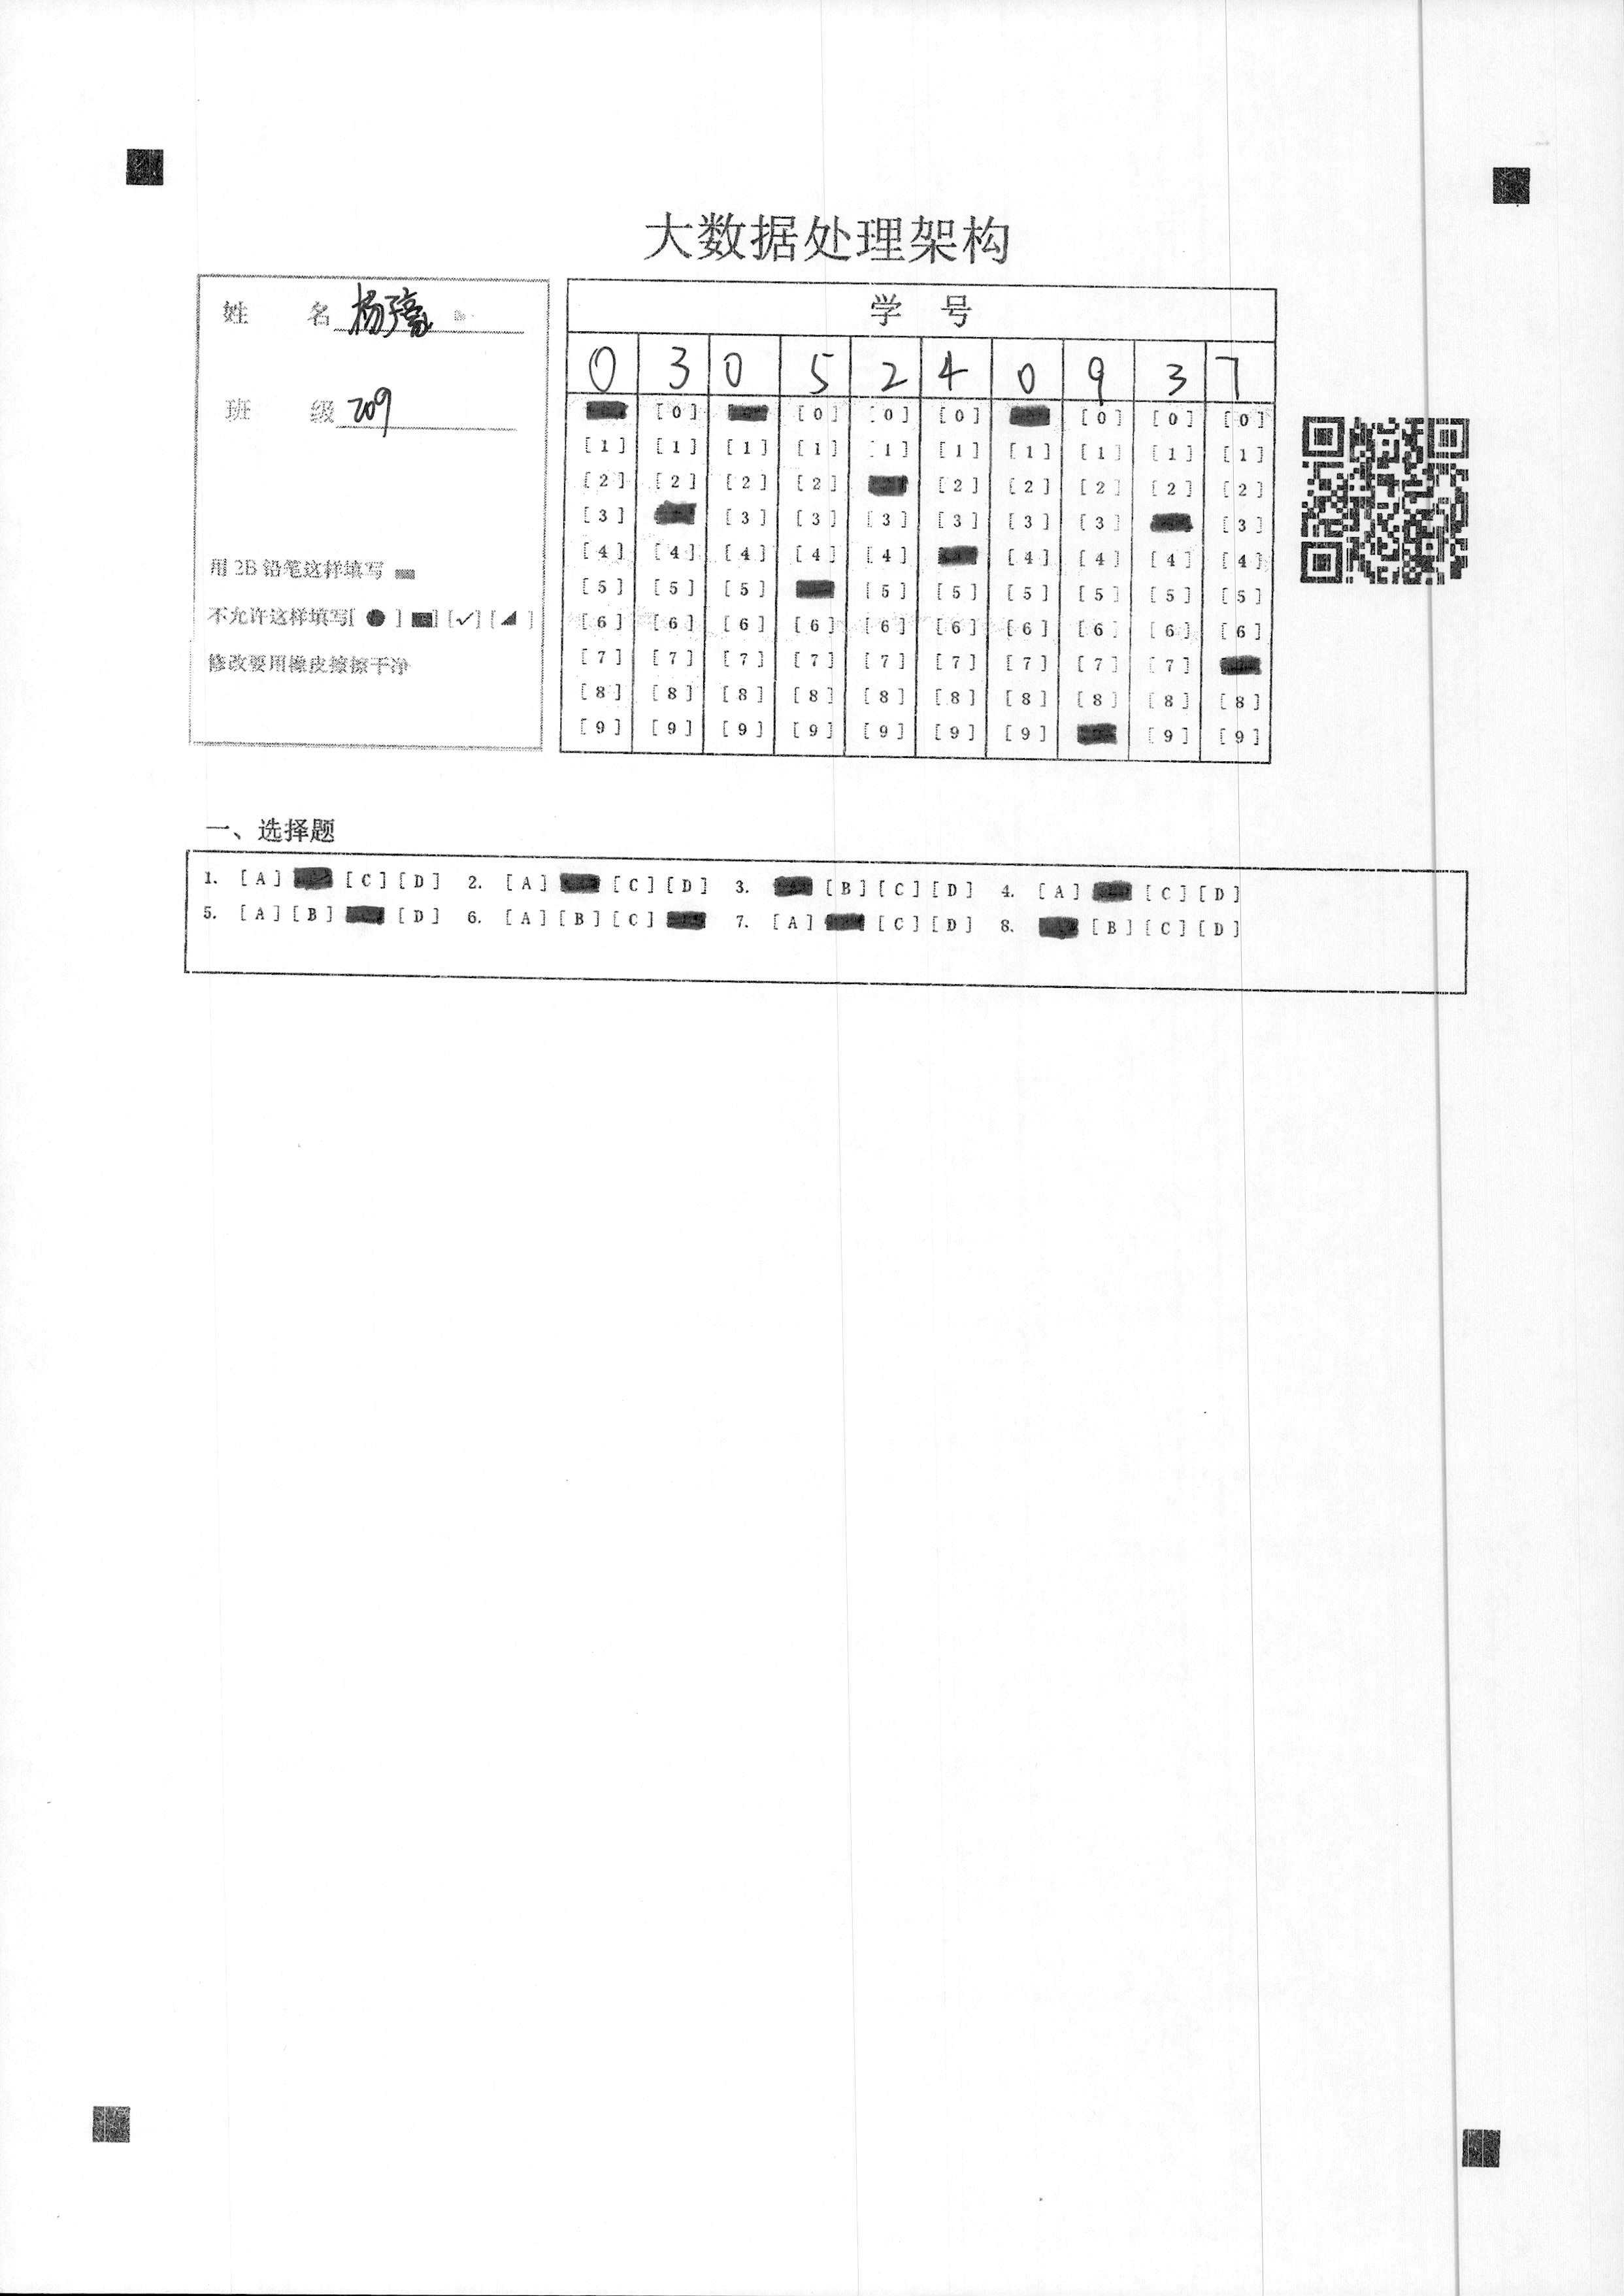 大数据处理架构
姓 名 杨子豪
班 级 209
用 2B 铅笔这样填写
不允许这样填写[ ● ] [ ✓ ] [ ◢ ]
修改要用橡皮擦擦干净
学 号
0 3 0 5 2 4 0 9 3 7
[0] [0] [0] [0] [0] [0] [0]
[1] [1] [1] [1] [1] [1] [1] [1] [1] [1]
[2] [2] [2] [2] [2] [2] [2] [2] [2]
[3] [3] [3] [3] [3] [3] [3] [3]
[4] [4] [4] [4] [4] [4] [4] [4] [4]
[5] [5] [5] [5] [5] [5] [5] [5] [5]
[6] [6] [6] [6] [6] [6] [6] [6] [6] [6]
[7] [7] [7] [7] [7] [7] [7] [7] [7]
[8] [8] [8] [8] [8] [8] [8] [8] [8] [8]
[9] [9] [9] [9] [9] [9] [9] [9] [9]
一、选择题
1. [A] [C] [D] 2. [A] [C] [D] 3. [B] [C] [D] 4. [A] [C] [D]
5. [A] [B] [D] 6. [A] [B] [C] 7. [A] [C] [D] 8. [B] [C] [D]